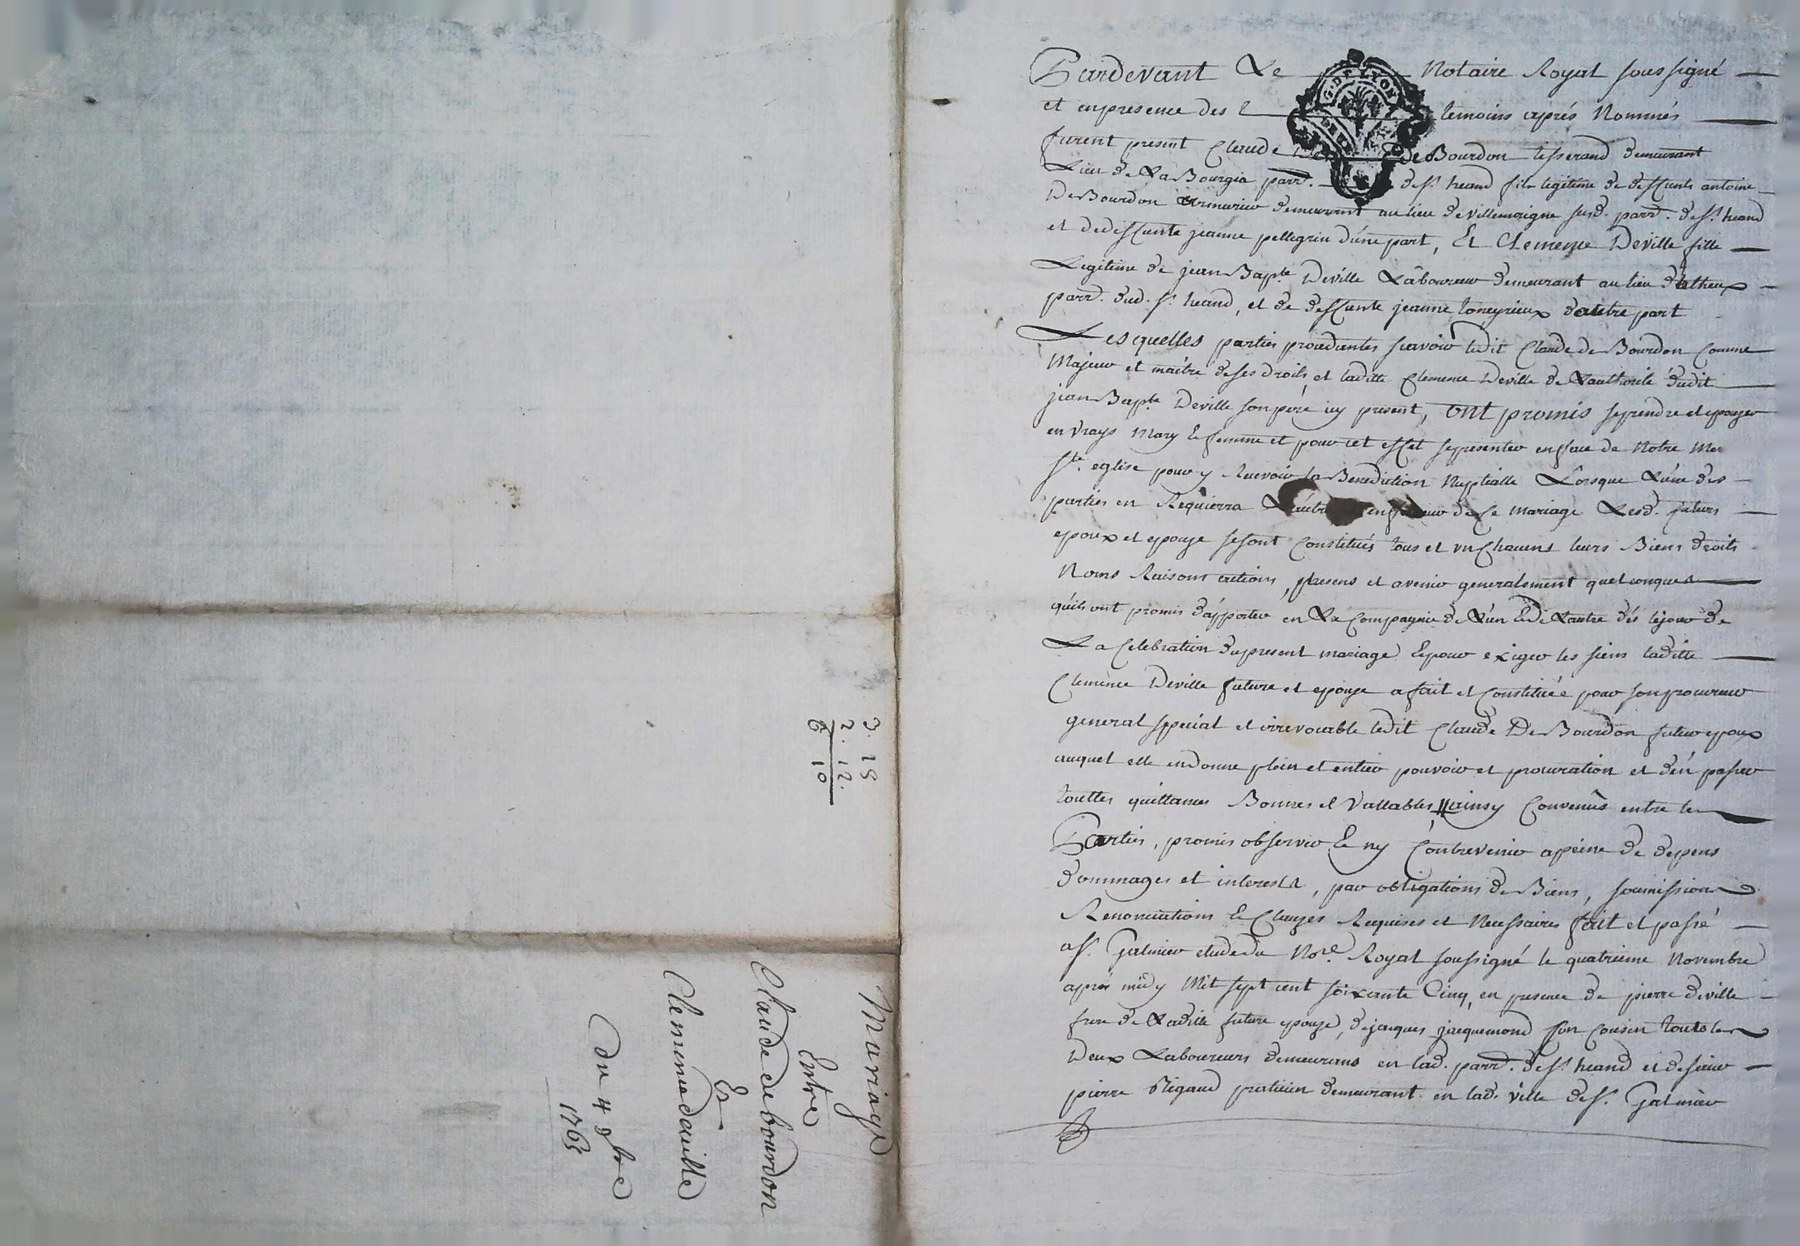 Pardevant Le Notaire Royal soussigné
et en presence des temoins aprés Nommés
furent present Claude De Bourdon tisserand demeurant
Lieu de La Bourgia parr. de st heand fils legitime de deffunts antoine
De Bourdon armurier demeurant au lieu de villemaigne susd. parr. de st heand
et de deffunte jeanne pellegrin d'une part, Et Clemence Deville fille
Legitime de jean Bapte Deville Laboureur demeurant au lieu
parr. dud. st heand, et de deffunte jeanne toneyrieux d'autre part
Les quelles parties procedantes scavoir ledit Claude de Bourdon Comme
Majeur et maitre de ses droits, et laditte Clemence Deville de L'authorité dudit
jean Bapte Deville son pére icy present, ont promis se prendre et epouzer
en vrays Mary & femme et pour cet effet se presenter en face de Notre Mer
ste eglise pour y Recevoir la Benediction Nuptialle Lorsque L'une des
parties en Requierra de Ce mariage Lesd. futurs
epoux et epouze se sont Constitués tous et un Chacuns leurs Biens droits
Noms Raisons actions, presens et avenir generalement quelconques
qu'ils ont promis d'apporter en La Compagnie de L'un & de L'autre dés le jour de
La Celebration du present mariage & pour exiger les siens laditte
Clemence Deville future et epouze a fait et Constitüée pour son procureur
general special et irrevocable ledit Claude De Bourdon futur epoux
auquel elle en donne plein et entier pouvoir et procuration et d'en passer
touttes quittances Bonnes et Vallables, ainsy Convenüs entre les
Parties, promis observer & ny Contrevenir a peine de depens
dommages et interests, par obligations de Biens, soumissions
Renonciations & Clauzes Requises et Necessaires fait et passé
a st Galmier etude du Nore Royal soussigné le quatrieme Novembre
aprés midy Mil sept cent soixante Cinq, en presence de pierre deville
frere de Laditte future epouze, de jacques jacquemond son Cousin tous les
Deux Laboureurs demeurans en lad. parr. de st heand et de sieur
pierre Rigaud praticien demeurant en lad. ville de st Galmier
3. 18
2. 12.
6 10
Mariage
Entre
Claude de bourdon
Et
Clemence deville
du 4 9bre
1765
G. D. F. LYON